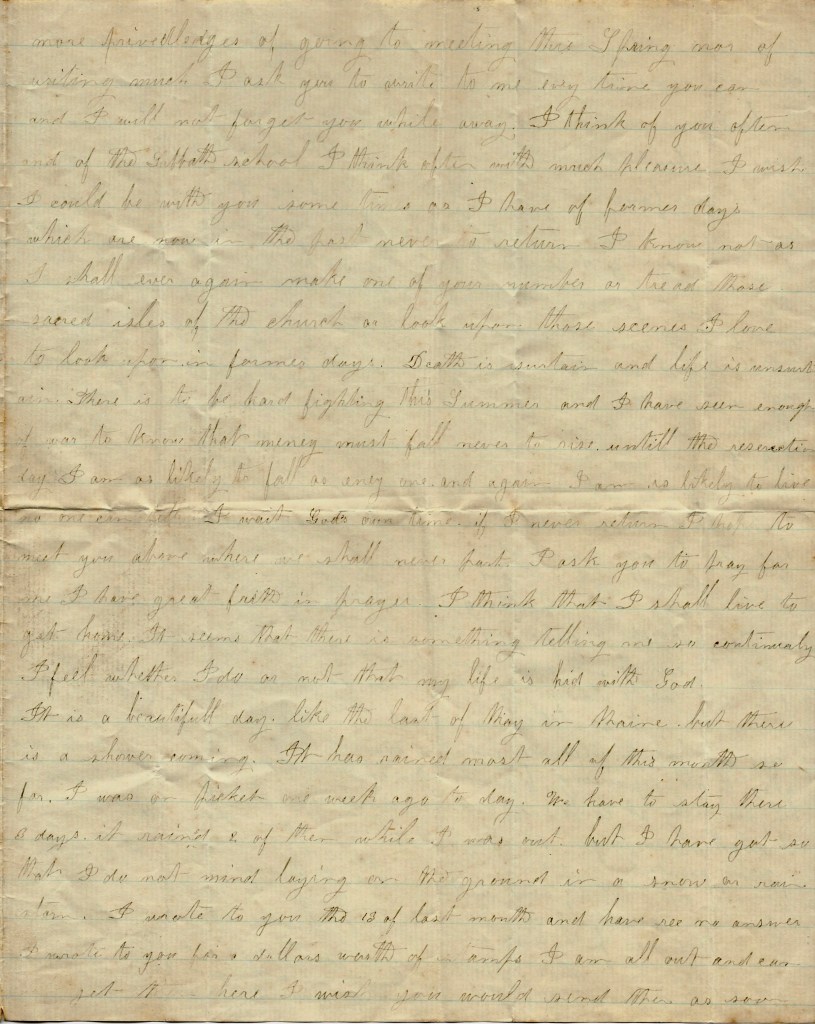 more privelledges of going to meeting this Spring nor of
writing much I ask you to write to me evry time you can
and I will not forget you while away. I think of you often
and of the Sabbath school I think often with much pleasure I wish
I could be with you some times as I have of former days
which are now in the past never to return I know not as
I shall ever again make one of your number or tread those
sacred isles of the church or look upon those scenes I love
to look upon in former days. Death is surtain and life is unsurt
ain. There is to be hard fighting this Summer and I have seen enough
of war to know that meney must fall never to rise untill the reserection
day I am as likely to fall as aney one and again I am as likely to live
no one can tell I wait Gods own time. if I never return I hope to
meet you above where we shall never part. I ask you to pray for
me I have great faith in prayer. I think that I shall live to
get home. It seems that there is something telling me so continualy
I feel whether I do or not that my life is hid with God.
It is a beautifull day. like the last of May in Maine. but there
is a shower coming. It has rained most all of this month so
far. I was on picket one week ago to day. We have to stay there
3 days. it rained 2 of them while I was out. but I have got so
that I do not mind laying on the ground in a snow or rain
storm. I wrote to you the 13 of last month and have rec no answer
I wrote to you for a dollars worth of stamps I am all out and can
get here I wish you would send them as soon